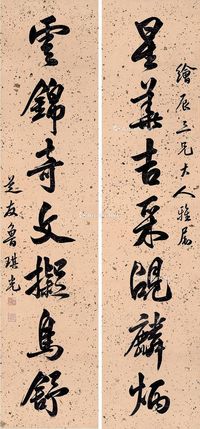 繪辰三兄大人雅屬
星華吉采麟炳
雲錦奇文擬鳥舒
芝友魯琪光